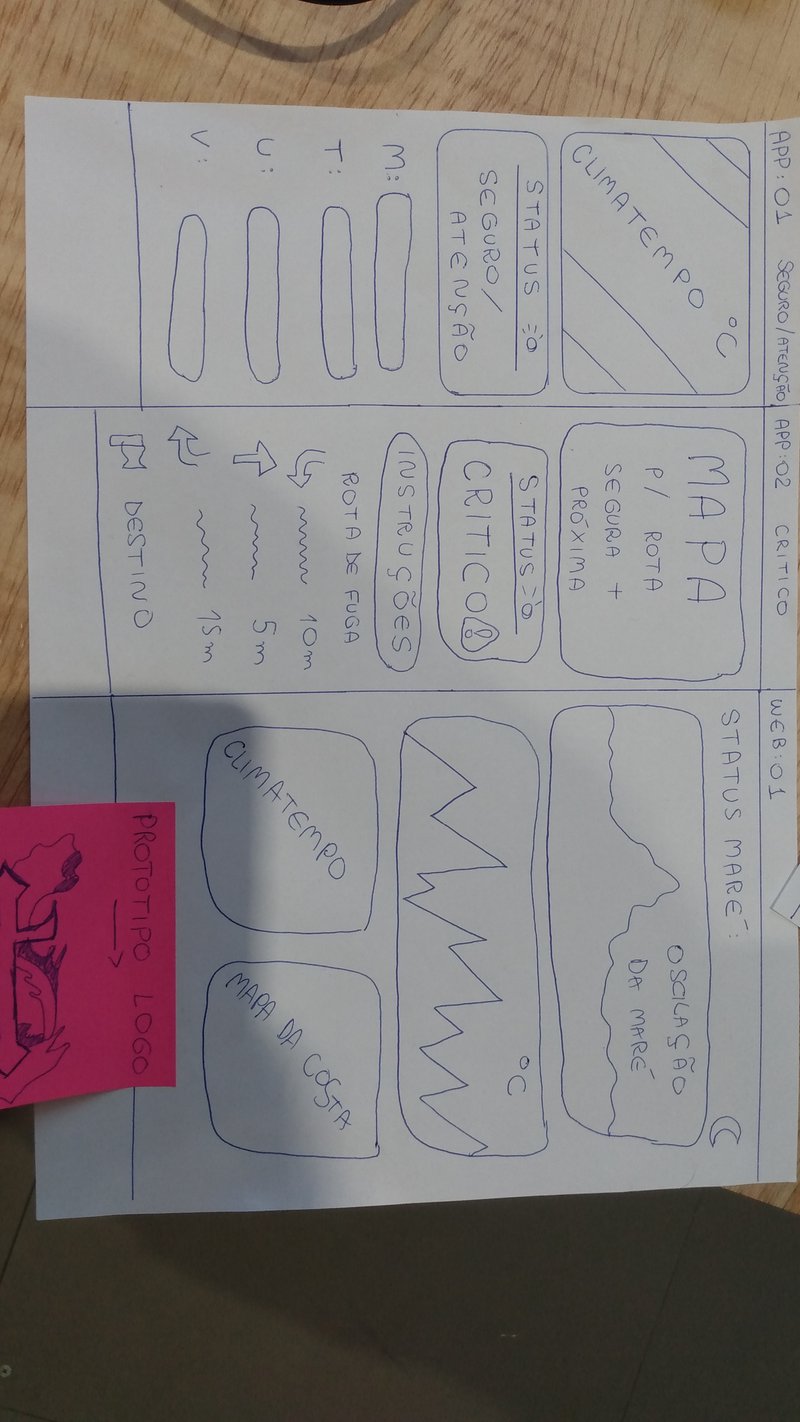 APP:01 SEGURO/ATENÇÃO
CLIMATEMPO °C
STATUS =>
SEGURO/
ATENÇÃO
M:
T:
U:
V:
APP:02 CRITICO
MAPA
P/ ROTA
SEGURA +
PRÓXIMA
STATUS =>
CRITICO
INSTRUÇÕES
ROTA DE FUGA
10m
5m
15m
DESTINO
WEB:01
STATUS MARÉ:
OSCILAÇÃO
DA MARÉ
°C
CLIMATEMPO
MAPA DA COSTA
PROTOTIPO LOGO